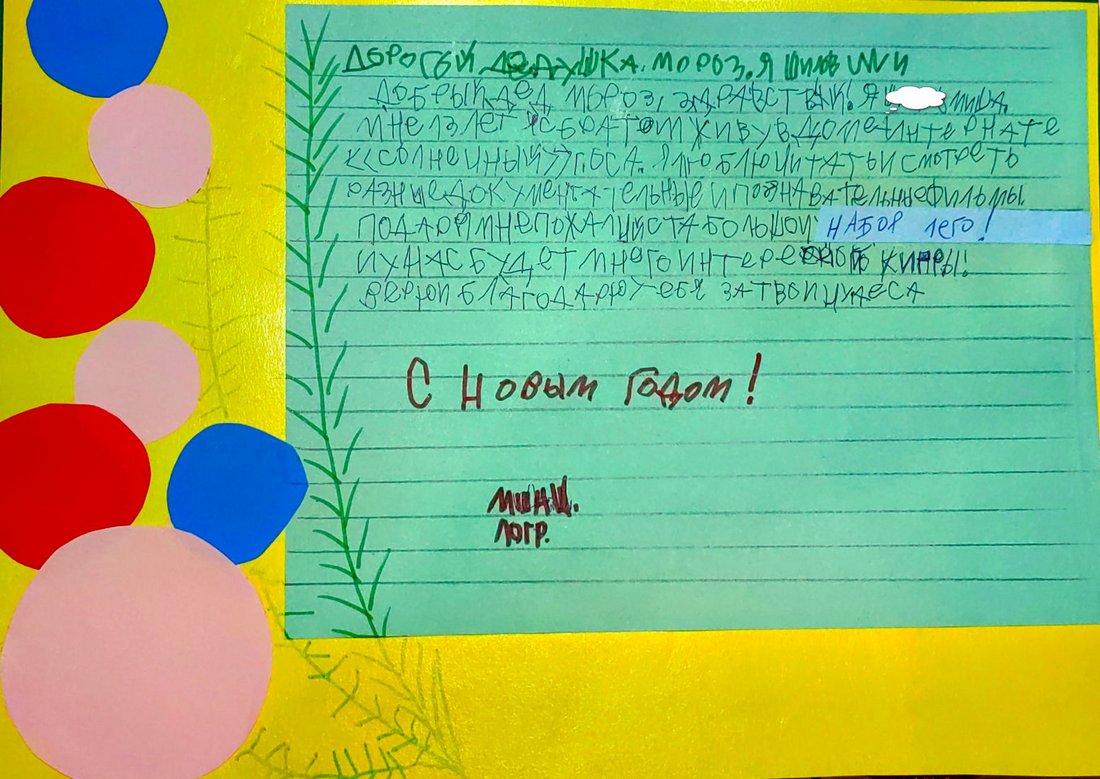 ДОРОГОЙ ДЕДУШКА. МОРОЗ. Я
ДОБРЫЙ ДЕД МОРОЗ, ЗДРАВСТВУЙ. Я МИША,
МНЕ 13 ЛЕТ Я С БРАТОМ ЖИВУ В ДОМЕ ИНТЕРНАТЕ
<<СОЛНЕЧНЫЙ>> Я ЛЮБЛЮ ЧИТАТЬ И СМОТРЕТЬ
РАЗНЫЕ ДОКУМЕНТАТЕЛЬНЫЕ И ПОЗНАВАТЕЛЬНЫЕ ФИЛЬМЫ
ПОДАРИ МНЕ ПОЖАЛУЙСТА БОЛЬШОЙ НАБОЯ ЛЕГО!
И У НАС БУДЕТ МНОГО
ВЕРЮ И БЛАГОДАРЮ ТЕБЯ ЗА ТВОИ ЧУДЕСА
С Новым Годом!